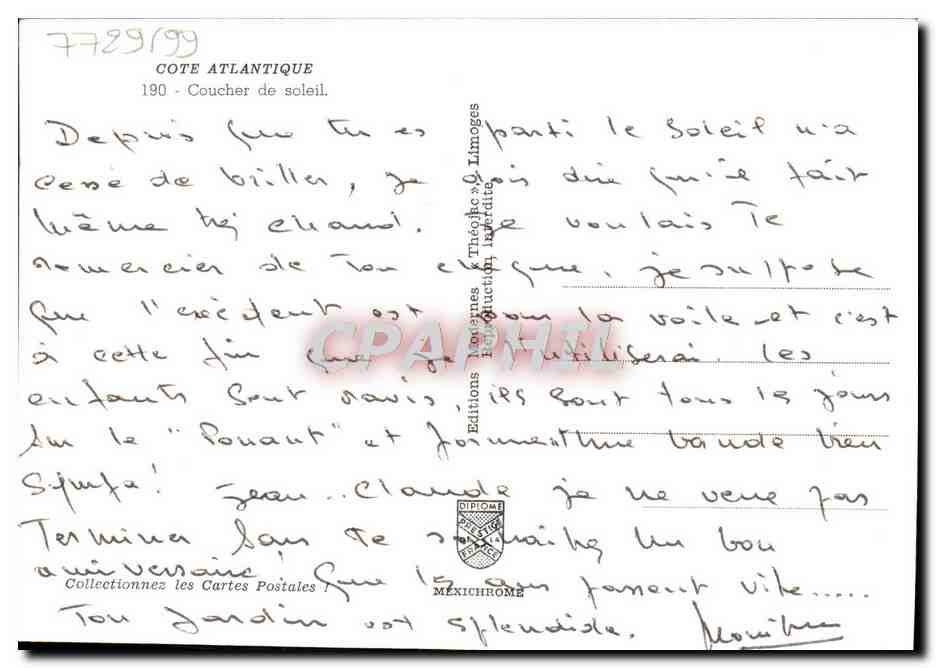 7729/99
COTE ATLANTIQUE
190 - Coucher de soleil.
Depuis que tu es parti le soleil n'a
cessé de briller, je dois dire qu'il fait
même très chaud. Je voulais Te
remercier de Ton chèque, je suppose
que l'excédent est pour la voile et c'est
à cette fin que je l'utiliserai. Les
enfants sont ravis, ils sont tous les jours
sur le "Ponant" et forment une bande bien
sympa! Jean-Claude je ne veux pas
Terminer sans te souhaiter un bon
anniversaire! que 15 ans passent vite.....
Ton Jardin est splendide.
Editions Modernes « Théojac » Limoges
Reproduction interdite
CPAPHIL
DIPLOME
PRESTIGE
FRANCE
MEXICHROME
Collectionnez les Cartes Postales !